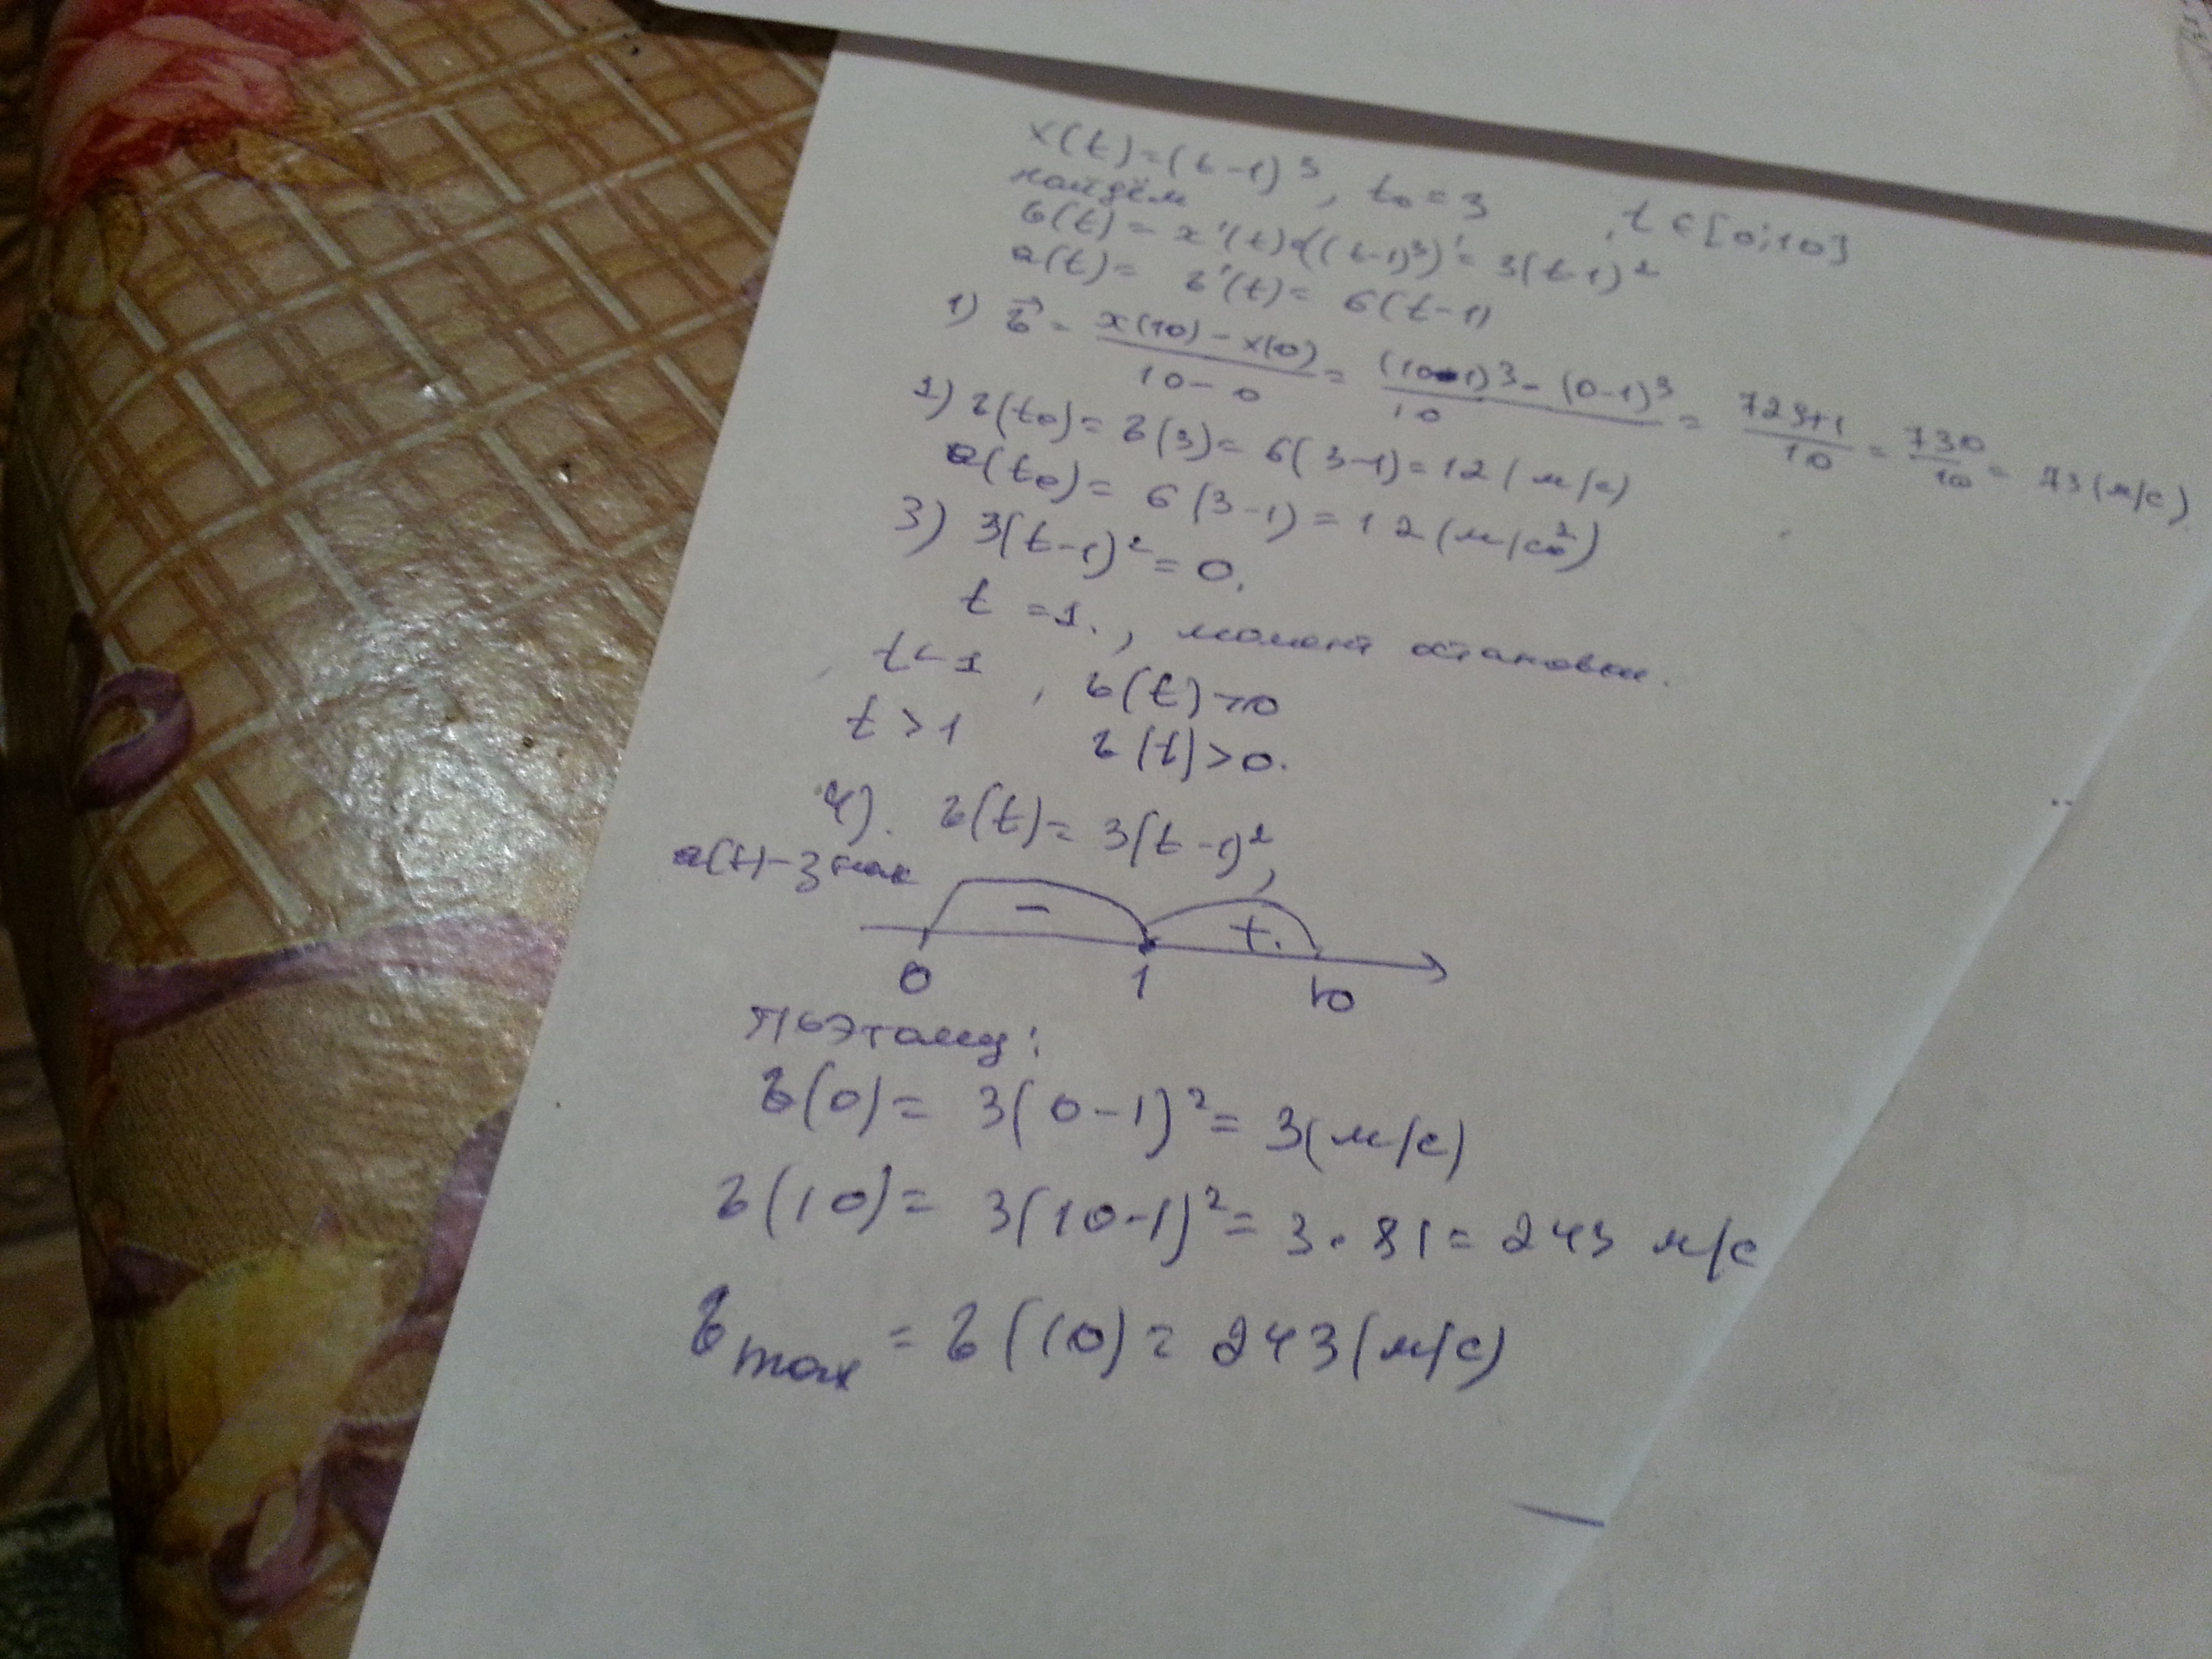 x(t)=(t-1)³, t₀=3, t∈[0;10]
найдём
v(t)=x'(t)=((t-1)³)'=3(t-1)²
a(t)=v'(t)=6(t-1)
1) v⃗=(x(10)-x(0))/(10-0)=((10-1)³-(0-1)³)/10=(729+1)/10=730/10=73(м/с).
2) v(t₀)=v(3)=6(3-1)=12(м/с)
a(t₀)=6(3-1)=12(м/с²)
3) 3(t-1)²=0.
t=1., момент остановки.
t<1, v(t)>0
t>1 v(t)>0.
4). v(t)=3(t-1)²,
a(t)-знак
- +.
0 1 10
Поэтому:
v(0)=3(0-1)²=3(м/с)
v(10)=3(10-1)²=3·81=243 м/с
v max=v(10)=243(м/с)